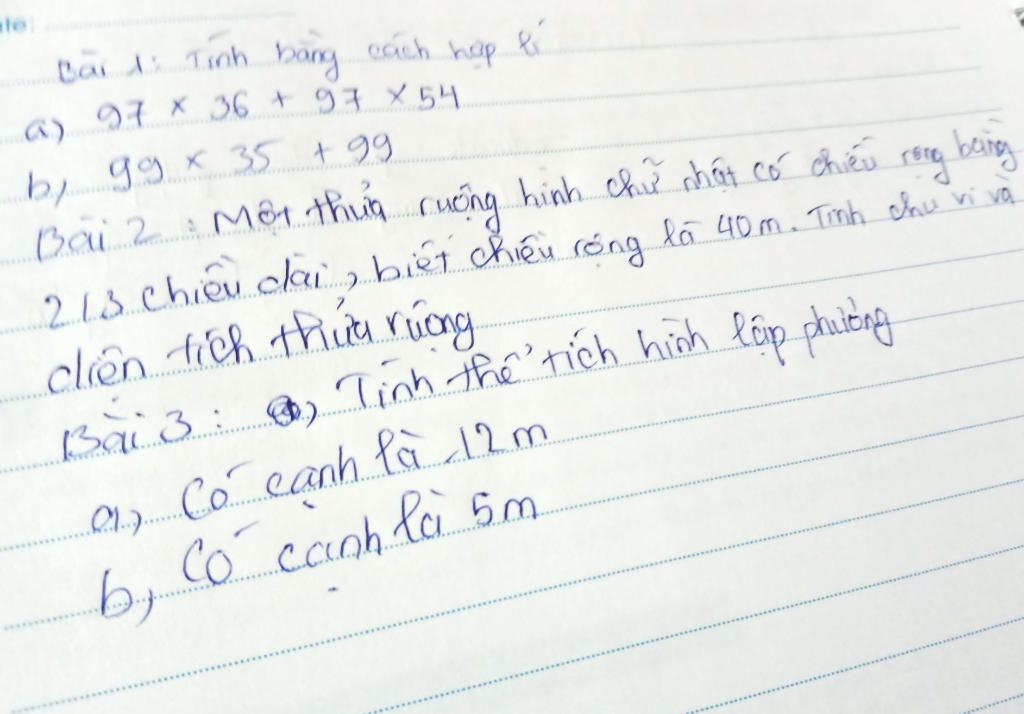 ate:
Bài 1: Tính bằng cách hợp lí
a, 97 × 36 + 97 × 54
b, 99 × 35 + 99
Bài 2 : Một thửa ruộng hình chữ nhật có chiều rộng bằng
2/3 chiều dài, biết chiều rộng là 40m. Tính chu vi và
diện tích thửa ruộng
Bài 3 : a, Tính thể tích hình lập phương
a, Có cạnh là 12m
b, Có cạnh là 5m